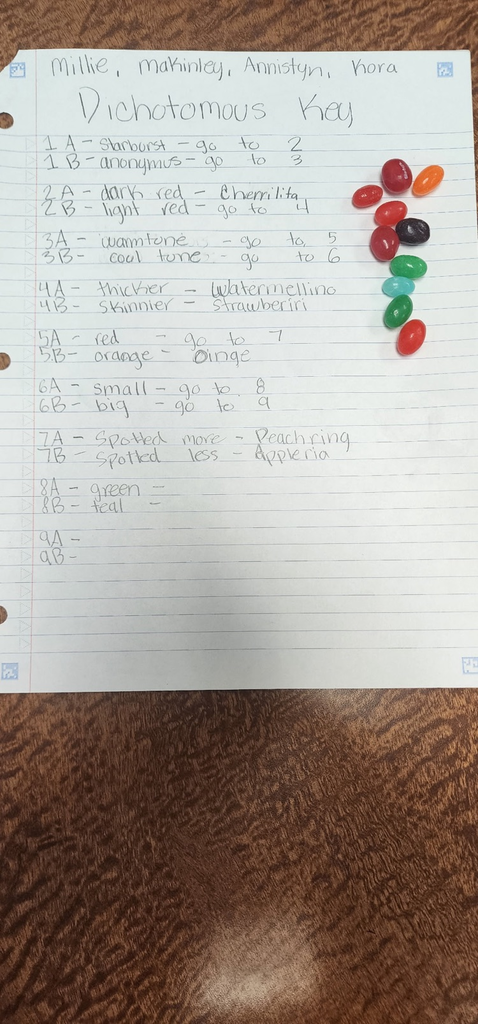 Millie, Makinley, Annistyn, Kora
Dichotomous Key
1 A - starburst - go to 2
1 B - anonymus - go to 3
2 A - dark red - Cherrilita
2 B - light red - go to 4
3A - warm tone - go to 5
3B - cool tone - go to 6
4A - thicker - Watermellino
4B - skinnier - Strawberiri
5A - red - go to 7
5B - orange - Oinge
6A - small - go to 8
6B - big - go to 9
7A - Spotted more - Peachring
7B - Spotted less - Appleria
8A - green -
8B - teal -
9A -
9B -